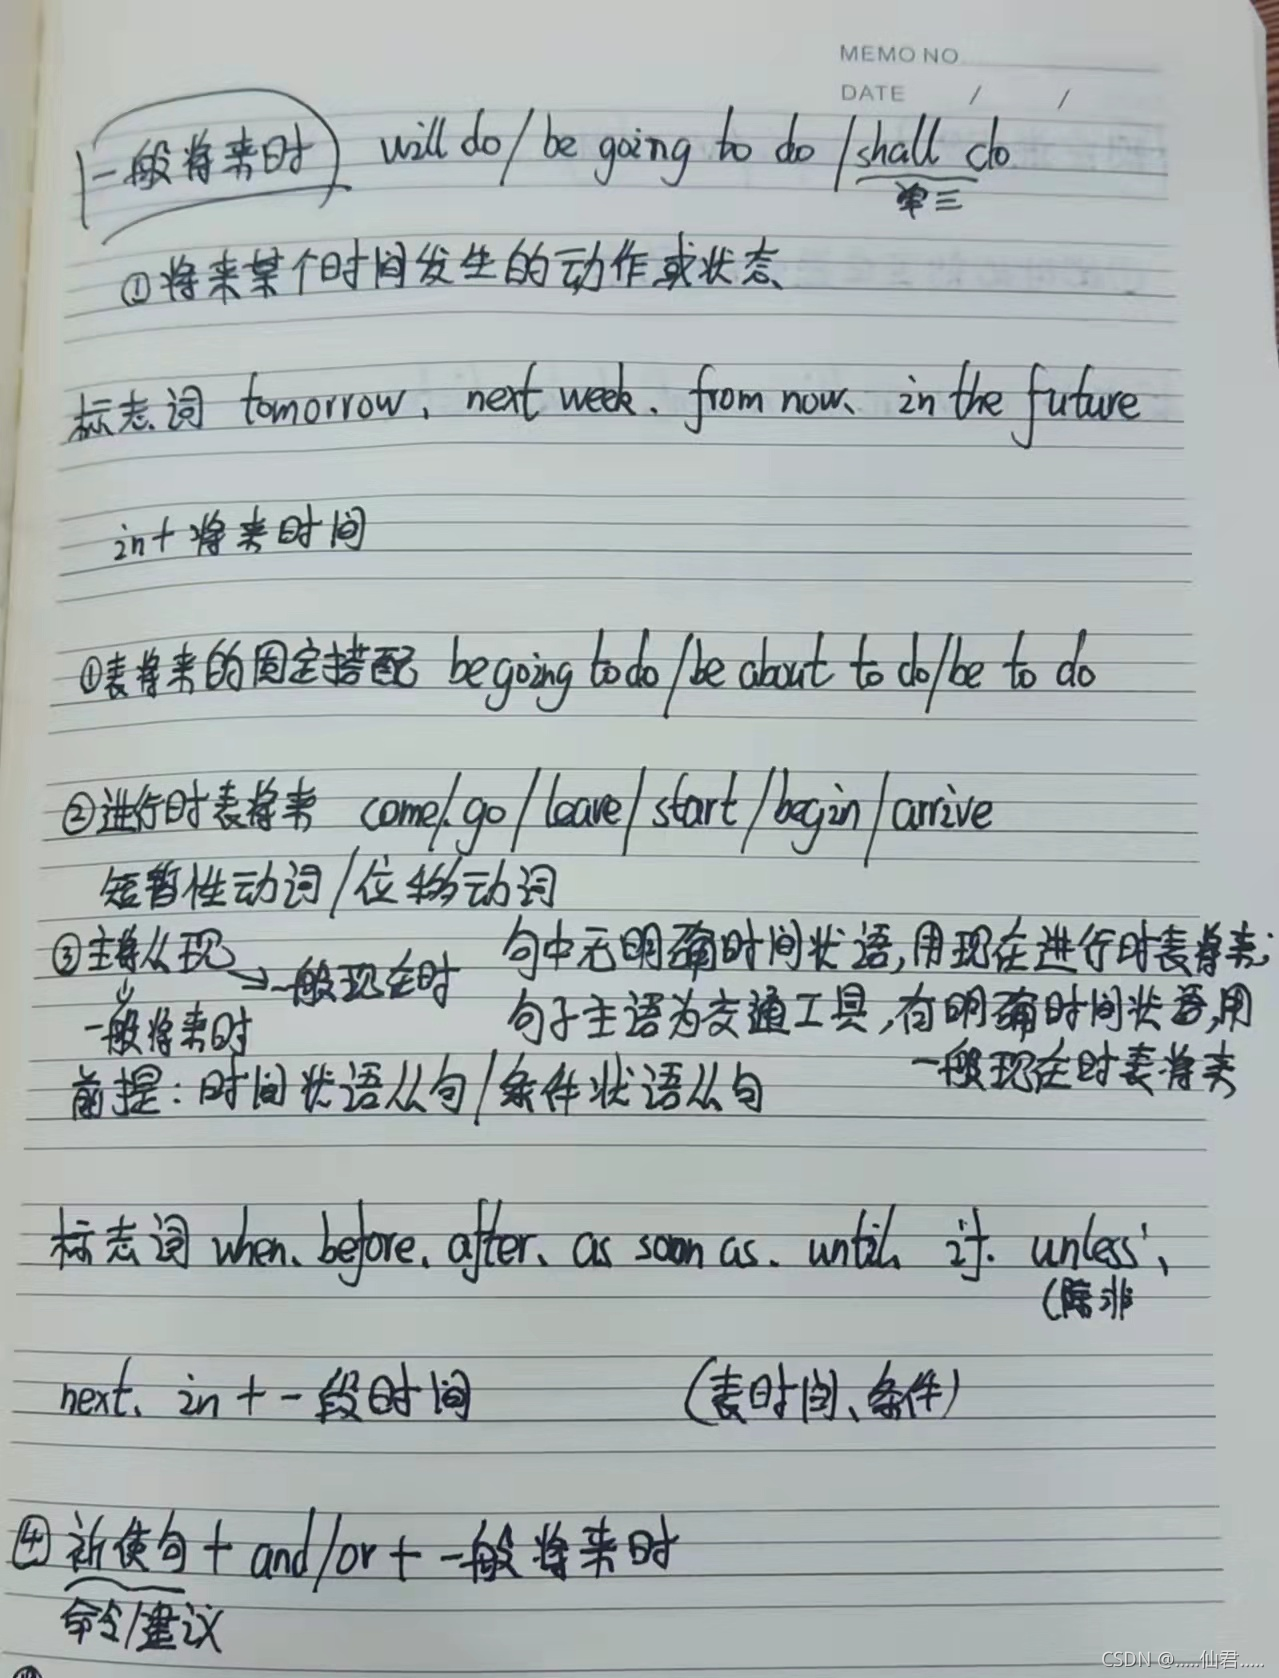 MEMO NO
DATE / /
一般将来时 will do / be going to do / shall do
单三
①将来某个时间发生的动作或状态
标志词 tomorrow、next week、from now、in the future
in+将来时间
①表将来的固定搭配 be going to do / be about to do / be to do
②进行时表将来 come / go / leave / start / begin / arrive
短暂性动词 / 位移动词
③主将从现 → 一般现在时
↓
一般将来时
句中无明确时间状语,用现在进行时表将来;
句子主语为交通工具,有明确时间状语,用
一般现在时表将来
前提:时间状语从句 / 条件状语从句
标志词 when、before、after、as soon as、until、if、unless、
(除非
next、in + 一段时间 (表时间、条件)
④祈使句 + and/or + 一般将来时
命令/建议
CSDN @.....仙君.....